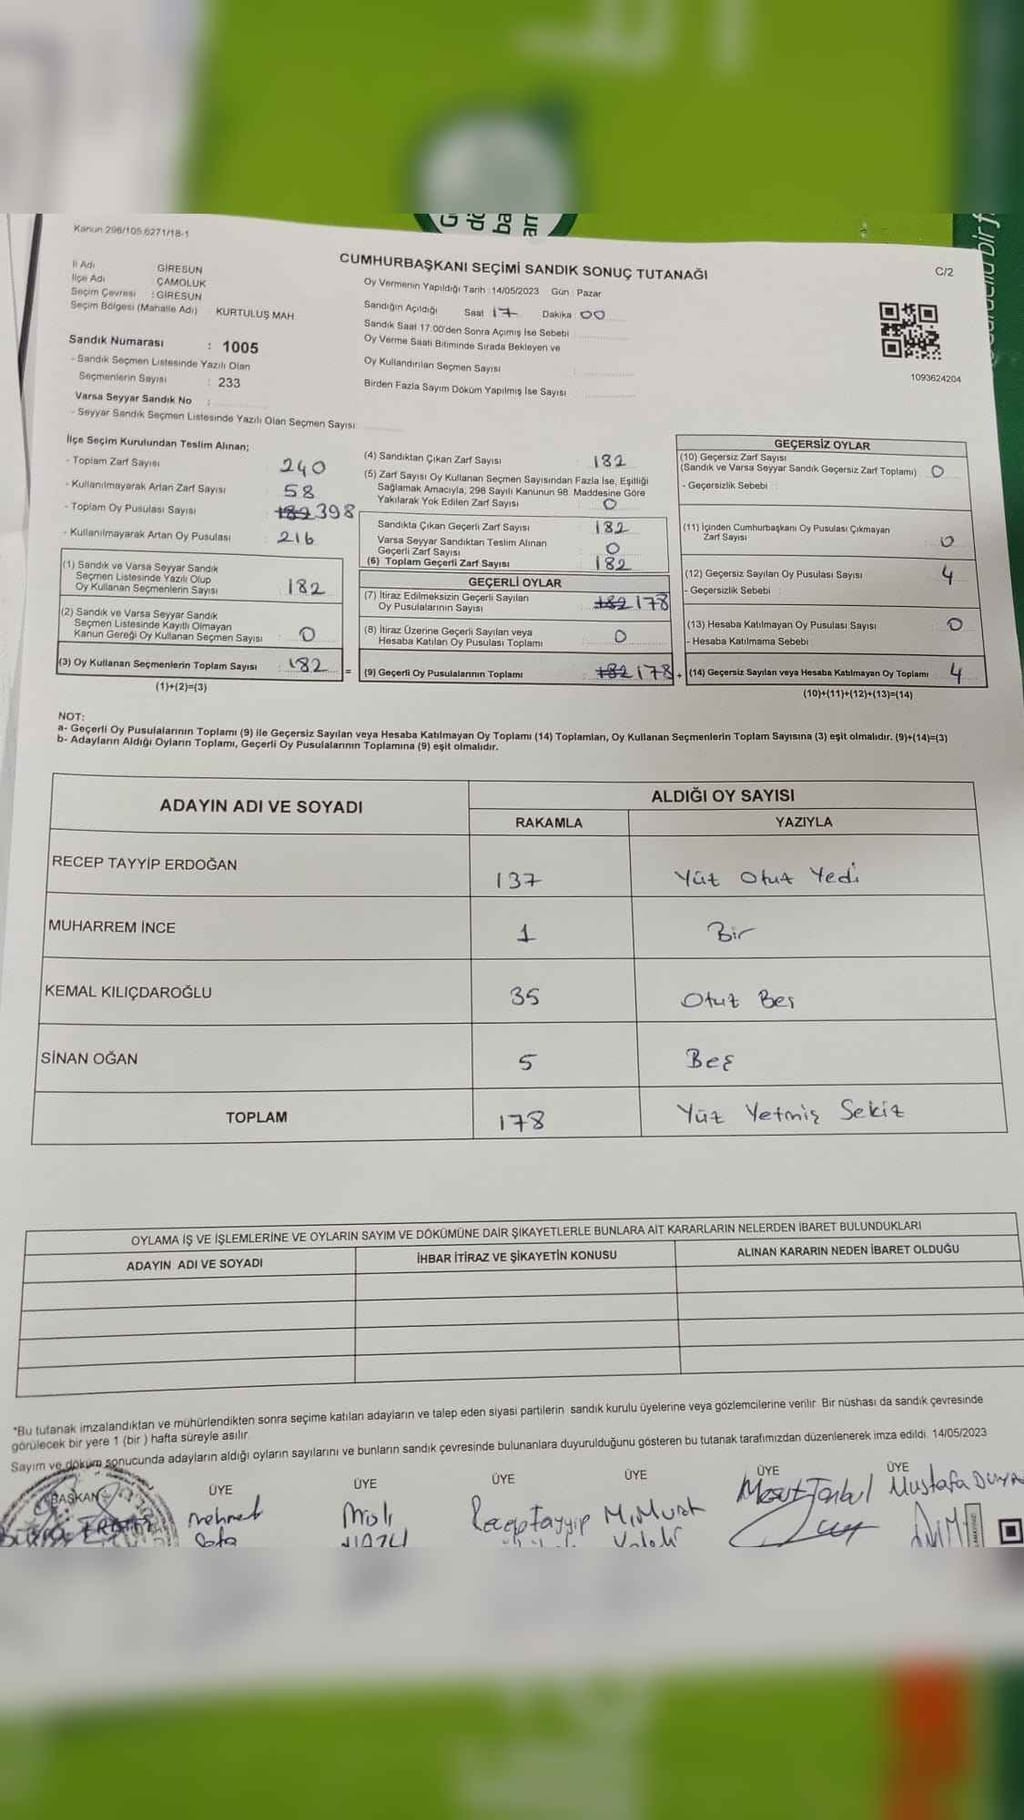 Kanun 298/105,6271/18-1
CUMHURBAŞKANI SEÇİMİ SANDIK SONUÇ TUTANAĞI
C/2
İl Adı GİRESUN
İlçe Adı ÇAMOLUK
Seçim Çevresi : GİRESUN
Seçim Bölgesi (Mahalle Adı) KURTULUŞ MAH
Sandık Numarası : 1005
- Sandık Seçmen Listesinde Yazılı Olan
Seçmenlerin Sayısı : 233
Varsa Seyyar Sandık No :
- Seyyar Sandık Seçmen Listesinde Yazılı Olan Seçmen Sayısı
Oy Vermenin Yapıldığı Tarih : 14/05/2023 Gün : Pazar
Sandığın Açıldığı Saat 17 Dakika 00
Sandık Saat 17:00'den Sonra Açımış İse Sebebi
Oy Verme Saati Bitiminde Sırada Bekleyen ve
Oy Kullandırılan Seçmen Sayısı
Birden Fazla Sayım Döküm Yapılmış İse Sayısı
1093624204
İlçe Seçim Kurulundan Teslim Alınan;
- Toplam Zarf Sayısı 240
- Kullanılmayarak Artan Zarf Sayısı 58
- Toplam Oy Pusulası Sayısı 182 398
- Kullanılmayarak Artan Oy Pusulası 216
(1) Sandık ve Varsa Seyyar Sandık
Seçmen Listesinde Yazılı Olup
Oy Kullanan Seçmenlerin Sayısı 182
(2) Sandık ve Varsa Seyyar Sandık
Seçmen Listesinde Kayıtlı Olmayan
Kanun Gereği Oy Kullanan Seçmen Sayısı 0
(3) Oy Kullanan Seçmenlerin Toplam Sayısı 182 =
(1)+(2)=(3)
(4) Sandıktan Çıkan Zarf Sayısı 182
(5) Zarf Sayısı Oy Kullanan Seçmen Sayısından Fazla İse, Eşitliği
Sağlamak Amacıyla, 298 Sayılı Kanunun 98. Maddesine Göre
Yakılarak Yok Edilen Zarf Sayısı 0
Sandıkta Çıkan Geçerli Zarf Sayısı 182
Varsa Seyyar Sandıktan Teslim Alınan
Geçerli Zarf Sayısı 0
(6) Toplam Geçerli Zarf Sayısı 182
GEÇERLİ OYLAR
(7) İtiraz Edilmeksizin Geçerli Sayılan
Oy Pusulalarının Sayısı 182 178
(8) İtiraz Üzerine Geçerli Sayılan veya
Hesaba Katılan Oy Pusulası Toplamı 0
(9) Geçerli Oy Pusulalarının Toplamı 182 178 +
GEÇERSİZ OYLAR
(10) Geçersiz Zarf Sayısı
(Sandık ve Varsa Seyyar Sandık Geçersiz Zarf Toplamı) 0
- Geçersizlik Sebebi :
(11) İçinden Cumhurbaşkanı Oy Pusulası Çıkmayan
Zarf Sayısı 0
(12) Geçersiz Sayılan Oy Pusulası Sayısı 4
- Geçersizlik Sebebi :
(13) Hesaba Katılmayan Oy Pusulası Sayısı 0
- Hesaba Katılmama Sebebi
(14) Geçersiz Sayılan veya Hesaba Katılmayan Oy Toplamı 4
(10)+(11)+(12)+(13)=(14)
NOT:
a- Geçerli Oy Pusulalarının Toplamı (9) ile Geçersiz Sayılan veya Hesaba Katılmayan Oy Toplamı (14) Toplamları, Oy Kullanan Seçmenlerin Toplam Sayısına (3) eşit olmalıdır. (9)+(14)=(3)
b- Adayların Aldığı Oyların Toplamı, Geçerli Oy Pusulalarının Toplamına (9) eşit olmalıdır.
ADAYIN ADI VE SOYADI ALDIĞI OY SAYISI
RAKAMLA YAZIYLA
RECEP TAYYİP ERDOĞAN 137 Yüz Otuz Yedi
MUHARREM İNCE 1 Bir
KEMAL KILIÇDAROĞLU 35 Otuz Beş
SİNAN OĞAN 5 Beş
TOPLAM 178 Yüz Yetmiş Sekiz
OYLAMA İŞ VE İŞLEMLERİNE VE OYLARIN SAYIM VE DÖKÜMÜNE DAİR ŞİKAYETLERLE BUNLARA AİT KARARLARIN NELERDEN İBARET BULUNDUKLARI
ADAYIN ADI VE SOYADI İHBAR İTİRAZ VE ŞİKAYETİN KONUSU ALINAN KARARIN NEDEN İBARET OLDUĞU
*Bu tutanak imzalandıktan ve mühürlendikten sonra seçime katılan adayların ve talep eden siyasi partilerin sandık kurulu üyelerine veya gözlemcilerine verilir. Bir nüshası da sandık çevresinde
görülecek bir yere 1 (bir) hafta süreyle asılır.
Sayım ve döküm sonucunda adayların aldığı oyların sayılarını ve bunların sandık çevresinde bulunanlara duyurulduğunu gösteren bu tutanak tarafımızdan düzenlenerek imza edildi. 14/05/2023
BAŞKAN ÜYE ÜYE ÜYE ÜYE ÜYE ÜYE
Mehmet Recep Tayyip M.Murat Mesut Mustafa